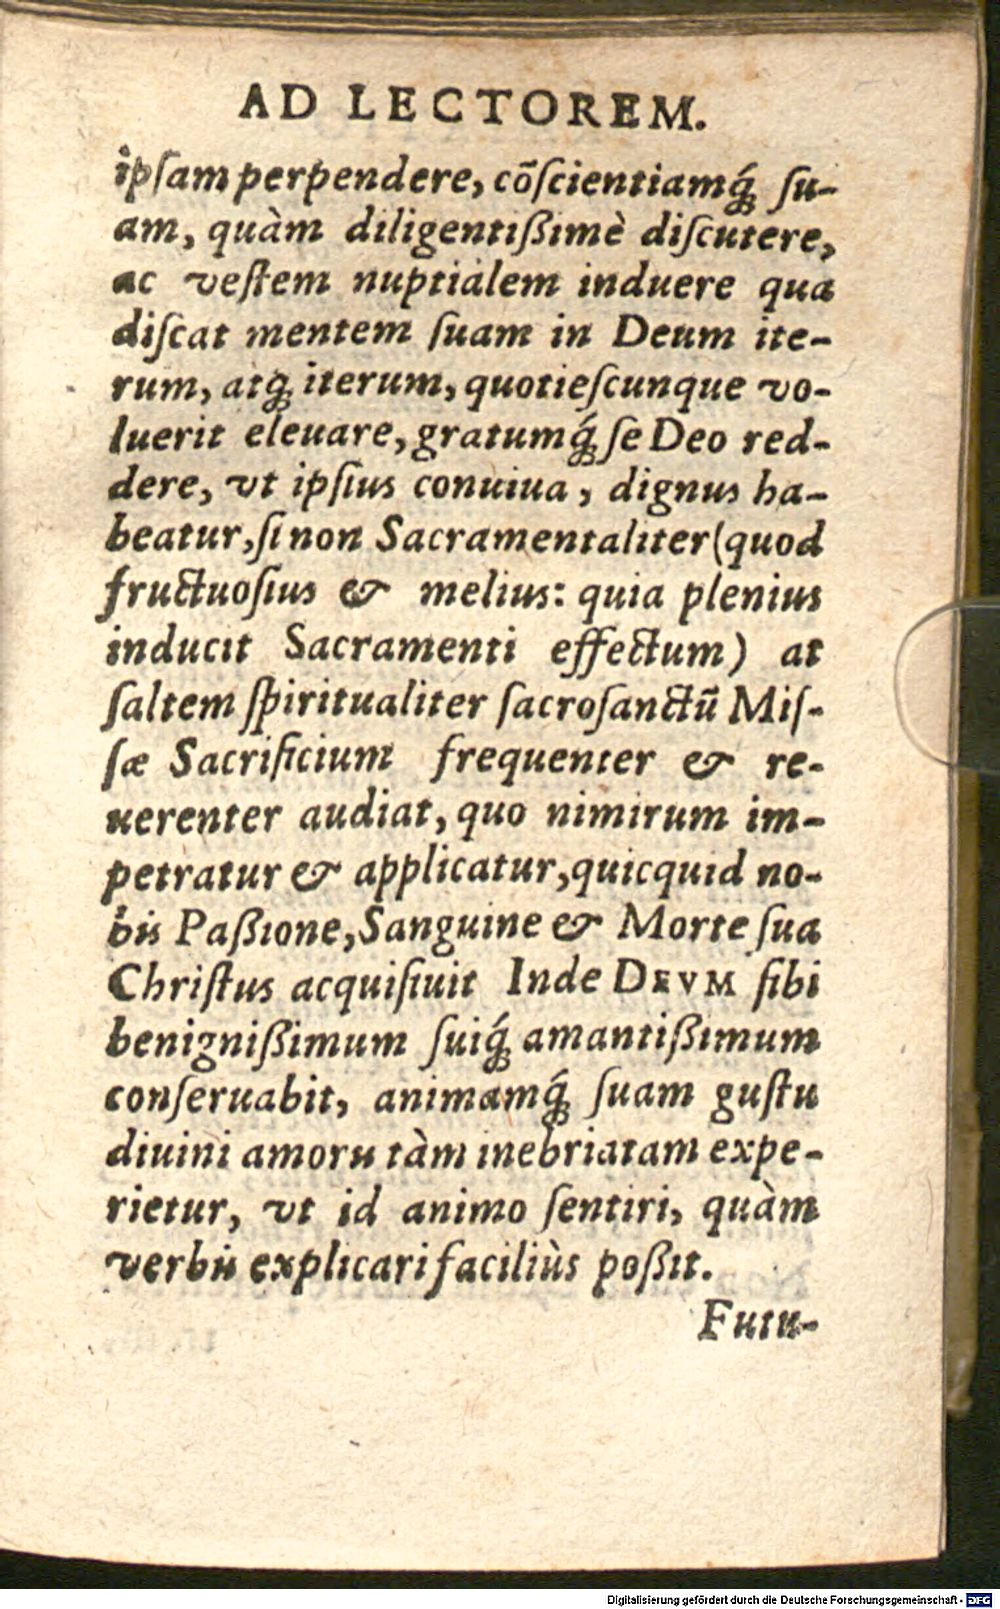 AD LECTOREM.
ipſam perpendere, cõſcientiamq́; ſu-
am, quàm diligentißimè diſcutere,
ac veſtem nuptialem induere qua
diſcat mentem ſuam in Deum ite-
rum, atq; iterum, quotieſcunque vo-
luerit eleuare, gratumq́; ſe Deo red-
dere, vt ipſius conuiua, dignus ha-
beatur, ſi non Sacramentaliter (quod
fructuoſius & melius: quia plenius
inducit Sacramenti effectum) at
ſaltem ſpiritualiter ſacroſanctũ Miſ-
ſæ Sacrificium frequenter & re-
uerenter audiat, quo nimirum im-
petratur & applicatur, quicquid no-
bis Paßione, Sanguine & Morte ſua
Chriſtus acquiſiuit Inde DEVM ſibi
benignißimum ſuiq́; amantißimum
conſeruabit, animamq́; ſuam guſtu
diuini amoris tàm inebriatam expe-
rietur, vt id animo ſentiri, quàm
verbis explicari faciliùs poßit.
Futu-
Digitalisierung gefördert durch die Deutsche Forschungsgemeinschaft - DFG